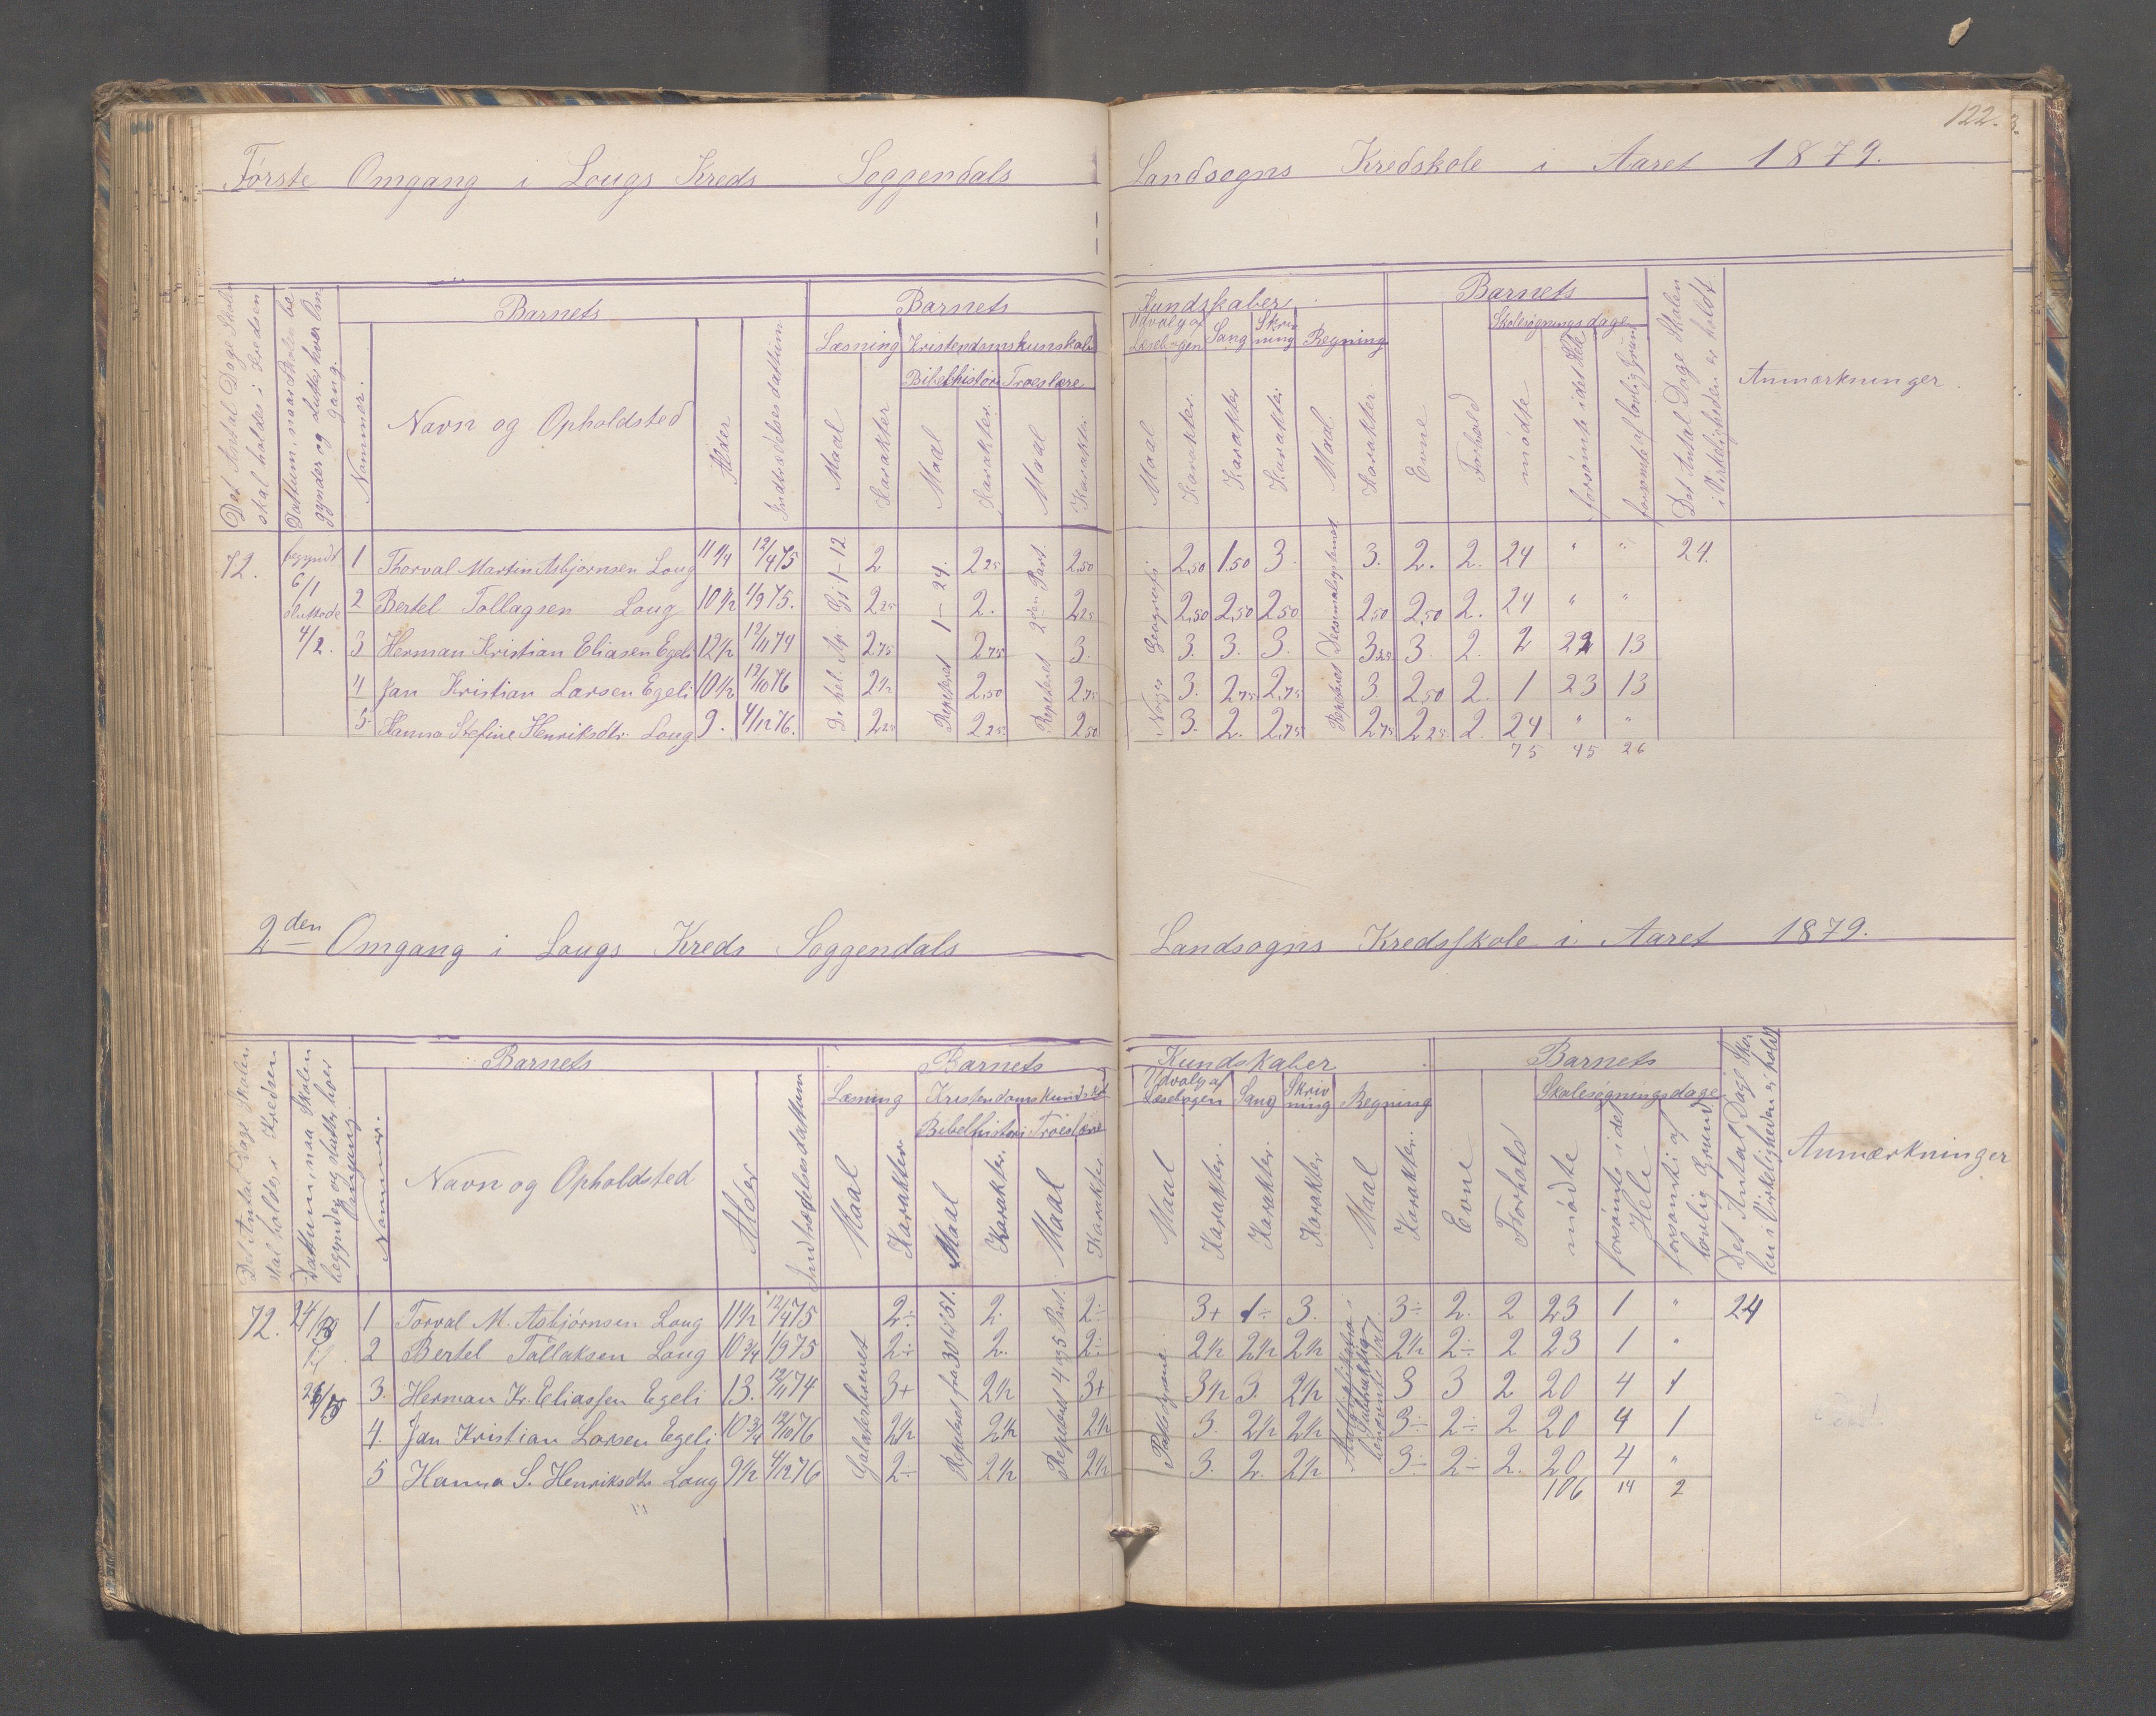 122.
Første Omgang i Lougs Kreds Soggendals Landsogns Kredskole i Aaret 1879.
Det Antal Dage Skolen skal holdes i Kredsen
Dattum, naar Skolen begynder og slutter hver Omgang.
Nummer.
Barnets
Navn og Opholdsted
Alder
Indtrædelsesdattum
Barnets Kundskaber
Læsning
Kristendomskunskab
Bibelhistorie
Troeslære
Maal
Karakter
Maal
Karakter
Maal
Karakter
Udvalg af Læsebogen
Sang
Skrivning
Regning
Maal
Karakter
Karakter
Karakter
Maal
Karakter
Barnets
Evne
Forhold
Skolesøgningsdage
mødte
forsømte i det Hele
forsømte af lovlig Grund
Det Antal Dage Skolen i Virkeligheden er holdt
Anmærkninger
72.
begyndt 6/1 sluttede 4/2.
1 Thorval Martin Asbjørnsen Loug 11 1/4 12/4 75 2 2,25 2,50 2,50 1,50 3. 3. 2. 2. 24 " " 24.
2 Bertel Tollagsen Loug 10 1/2 1/9 75. 2,25 2. 2,25 2,50 2,50 2,50 2,50 2,50 2. 24 " "
3 Herman Kristian Eliasen Egeli 12 1/2 12/11 74 2,75 2,75 3. 3. 3. 3. 3,25 3. 2. 2 22 13
4 Jan Kristian Larsen Egeli 10 1/2 12/10 76 2 1/2 2,50 2,75 3. 2,75 2,75 3. 2,50 2. 1 23 13
5 Hanna Stefine Henriksdtr. Loug 9. 4/12 76. 2,25 2,25 2,50 3. 2. 2,75 2,75 2,25 2. 24 " "
75 45 26
1-24. Repeteret
2den Part. Repeteret
Norges Geografi
Repeteret Decimalsystemet
2den Omgang i Lougs Kreds Soggendals Landsogns Kredsskole i Aaret 1879.
Det Antal Dage Skolen skal holdes i Kredsen
Dattum, naa Skolen begynder og slutter hver Omgang.
Nummer.
Barnets
Navn og Opholdsted
Alder
Indtrædelsesdattum
Barnets Kundskaber
Læsning
Kristendomskundskab
Bibelhistori
Troeslære
Maal
Karakter
Maal
Karakter.
Maal
Karakter
Udvalg af Læsebogen
Sang
Skrivning
Regning
Maal
Karakter.
Karakter
Karakter
Maal
Karakter.
Barnets
Evne
Forhold
Skolesøgningsdage
mødte
forsømte i det Hele
forsømte af lovlig Grund
Det Antal Dage Skolen i Virkeligheden er holdt
Anmærkninger
72.
1 Torval M. Asbjørnsen Loug 11 1/2 12/4 75 2÷ 2. 2÷ 3+ 1÷ 3. 3÷ 2. 2 23 1 " 24
2 Bertel Tollaksen Loug 10 3/4 1/9 75 2÷ 2. 2÷ 2 1/2 2 1/2 2 1/2 2 1/2 2÷ 2 23 1 "
3. Herman Kr. Eliassen Egeli 13. 12/11 74 3+ 2 1/2 3+ 3 1/2 3. 2 1/2 3 3 2 20 4 1
4. Jan Kristian Larsen Egeli 10 3/4 12/10 76 2 1/2 2 1/2 2 1/2 3. 2 1/2 2 1/2 3÷ 2÷ 2 20 4 1
5 Hanna S. Henriksdtr Loug 9 1/2 4/12 76 2÷ 2 1/2 2 1/2 3. 2. 2 1/2 3÷ 2÷ 2. 20 4 "
106 14 2
Galaterbrevet
Repeteret fra 30 til 51.
Repeteret 4 og 5 Part.